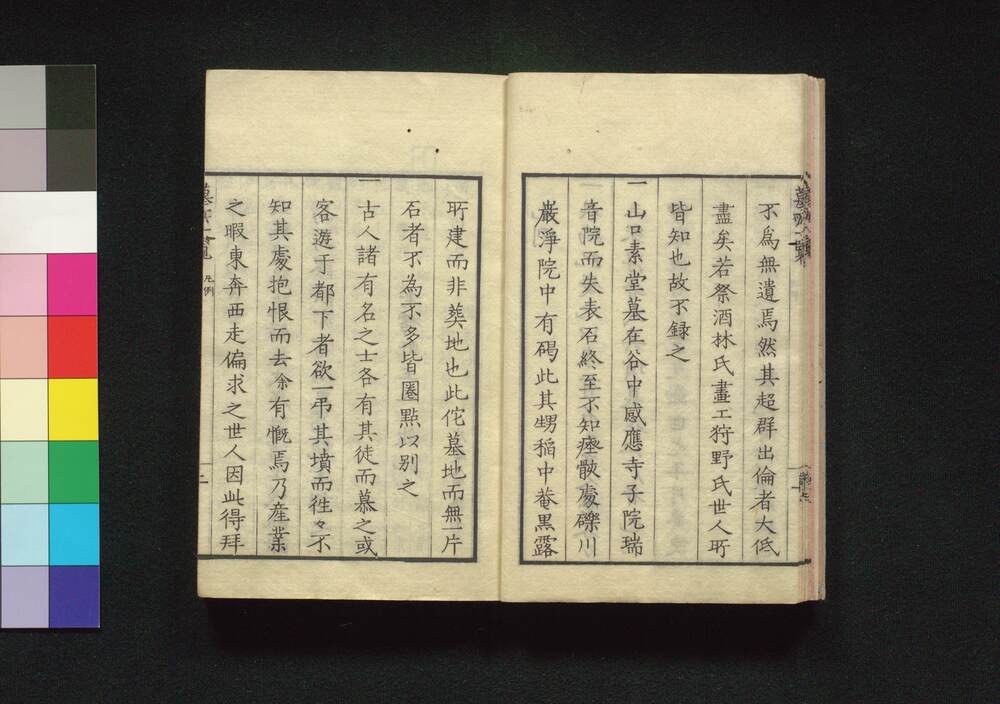 不爲無遺焉然其超群出倫者大低
盡矣若祭酒林氏畫工狩野氏世人所
皆知也故不録之
一山口素堂墓在谷中感應寺子院瑞
音院而失表石終至不知瘞骸處礫川
嚴淨院中有碣此其甥稲中菴黒露
所建而非葬地也此佗墓地而無一片
石者不為不多皆圏點以別之
一古人諸有名之士各有其徒而慕之或
客遊于都下者欲一弔其墳而徃々不
知其處抱恨而去余有慨焉乃産業
之暇東奔西走偏求之世人因此得拜
凡例
二